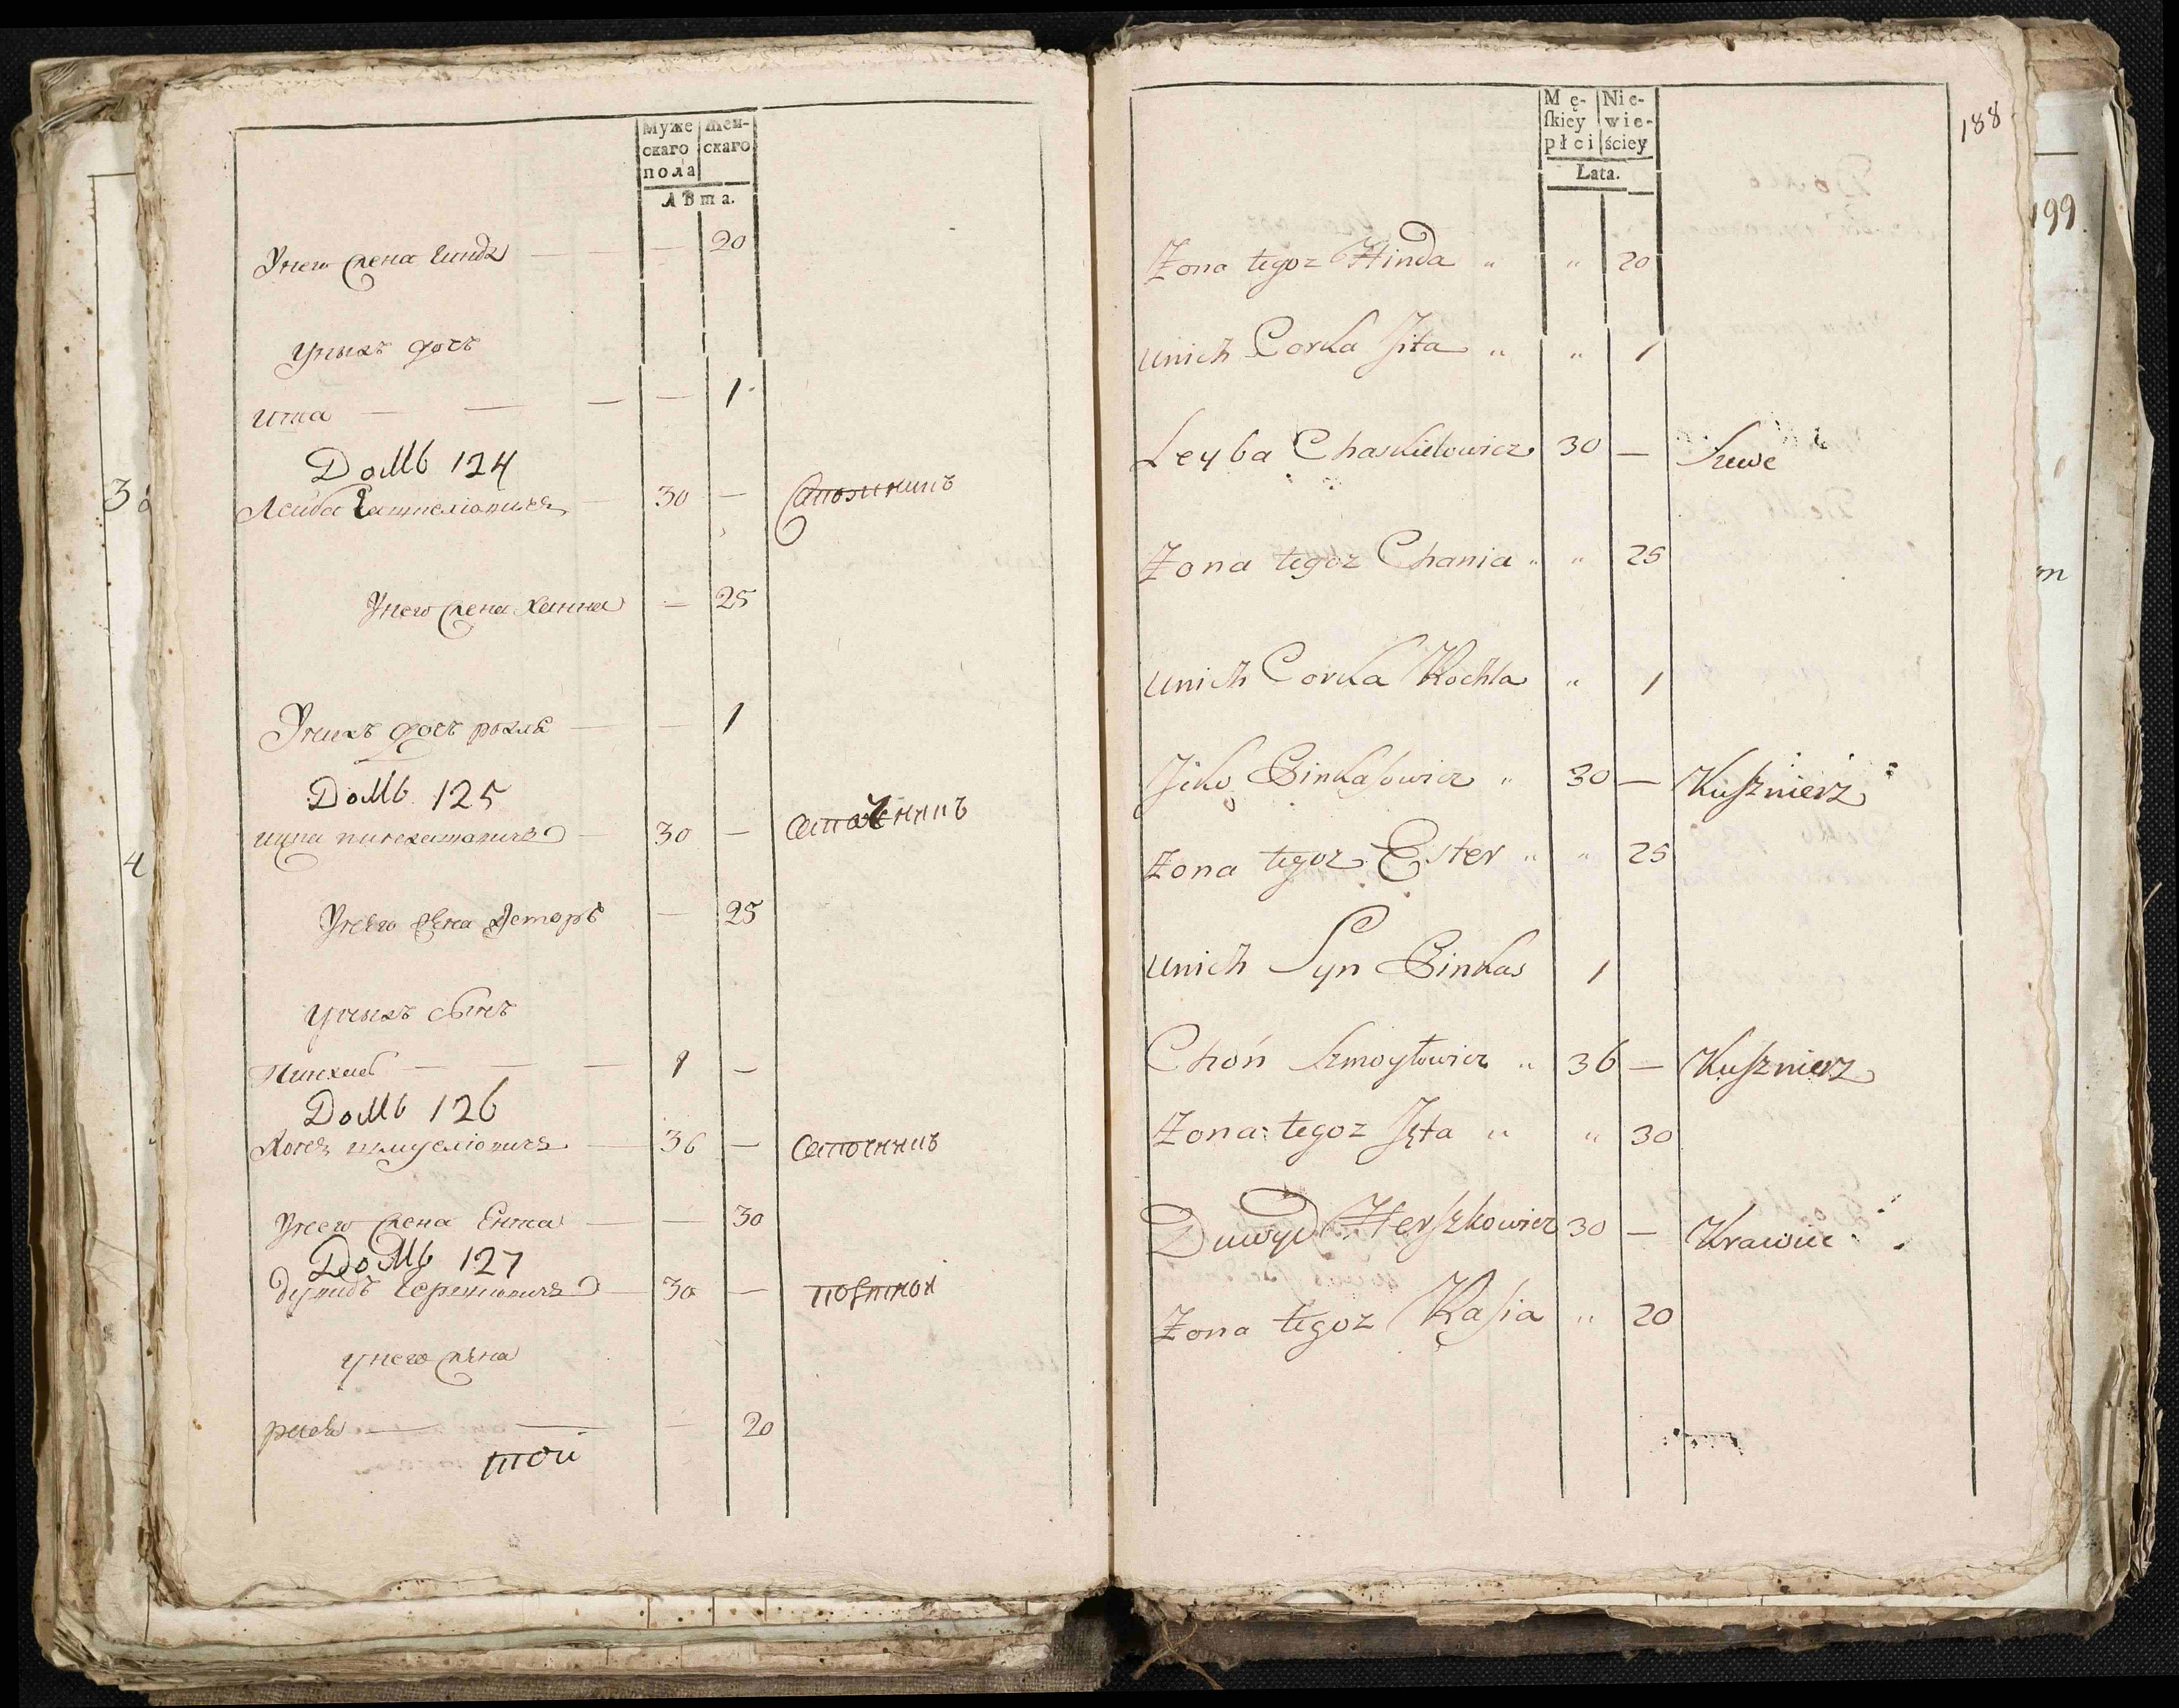 Муже
скаго
пола
жен-
скаго
Лѣта.
Унего жена Гинда — — — 20
Унихъ дочъ
итка — — — — 1
Домъ 124
Лейба Гашкеліовичъ — 30 — Сапожникъ
Унего жена Ханна — 25
Унихъ дочъ рохля — — 1
Домъ 125
ицка пинхасовичъ — 30 —
Унего жена Эстеръ — 25
Унихъ сынъ
Пинхас — — — 1 —
Домъ 126
Хонъ шмуеліовичъ — 36 —
Унего жена Ента — — 30
Домъ 127
дувидъ Гершковичъ — 30 — портной
Унего жена
рися — — — 20
той
188
Mę-
ſkiey
płci
Nie-
wie-
ściey
Lata.
Żona tegoż Hinda " " 20
unich Corka Jita " " 1
Leyba Chaskielowicz 30 — Szewc
Żona tegoż Chania " " 25
unich Corka Rochla " 1
Jcko Pinkasowicz " 30 — Kuſznierz
Żona tegoż Ester " " 25
unich Syn Pinkas 1
Choń Szmoyłowicz " 36 — Kuſznierz
Żona tegoż Jęta " " 30
Duwyd Herſzkowicz 30 — Krawiec
Żona tegoż Raſia " 20
199